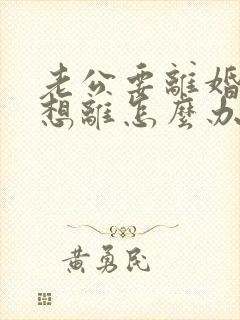 老公要離婚
想離怎麼办
黄勇民